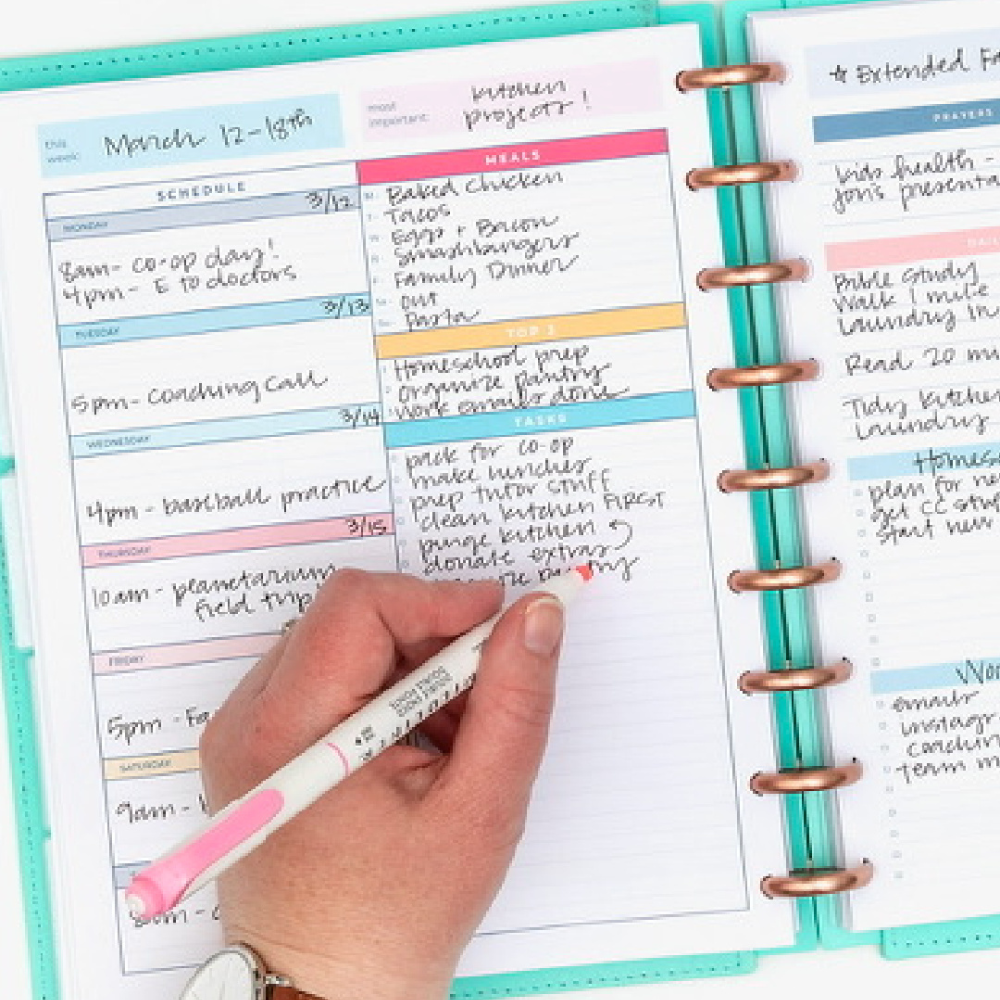 this week:
March 12-18th
most important:
kitchen projects!
SCHEDULE
MONDAY 3/12
8am- co-op day!
4pm- E to doctors
TUESDAY 3/13
5pm- coaching call
WEDNESDAY 3/14
4pm- baseball practice
THURSDAY 3/15
10am- planetarium
field trip
FRIDAY
5pm - Fa
SATURDAY
9am -
8am -
MEALS
Baked chicken
Tacos
Eggs + Bacon
Smashburgers
Family Dinner
out
Pasta
TOP 3
Homeschool prep
organize pantry
work emails done
TASKS
pack for co-op
make lunches
prep tutor stuff
clean kitchen FIRST
purge kitchen
donate extras
pantry
☆ Extended Fa
PRAYERS
kids health -
Jon's presenta
DAIL
Bible study
Walk 1 mile
Laundry
Read 20 mi
Tidy kitche
Laundry
Homes
plan for ne
get CC stu
start new
Wo
emails
instagr
coachin
team m